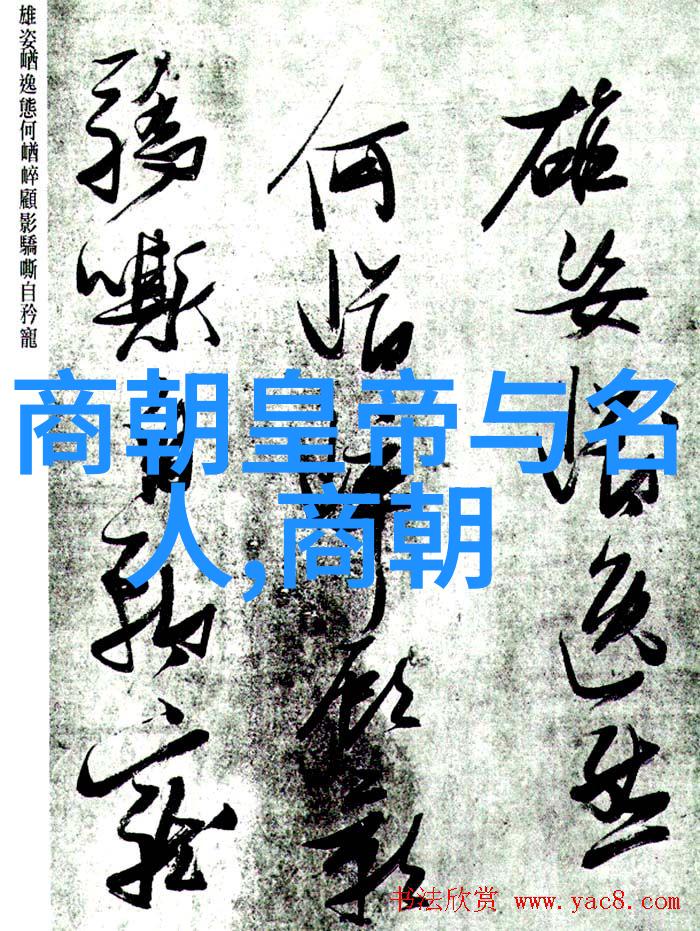 雄姿崷逸態何崷崪顧影驕嘶自矜寵
雄姿崷逸態
何崷崪顧影
驕嘶自矜寵
商朝皇帝与名
人,商朝
书法欣赏 www.yac8.com